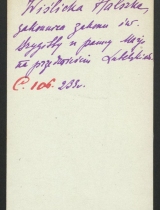 Wiślicka Halszka,
zakonnica zakonu św.
Brygitty u panny Maryi
na przedmieściu Lubelskiem
C. 106. 233v.